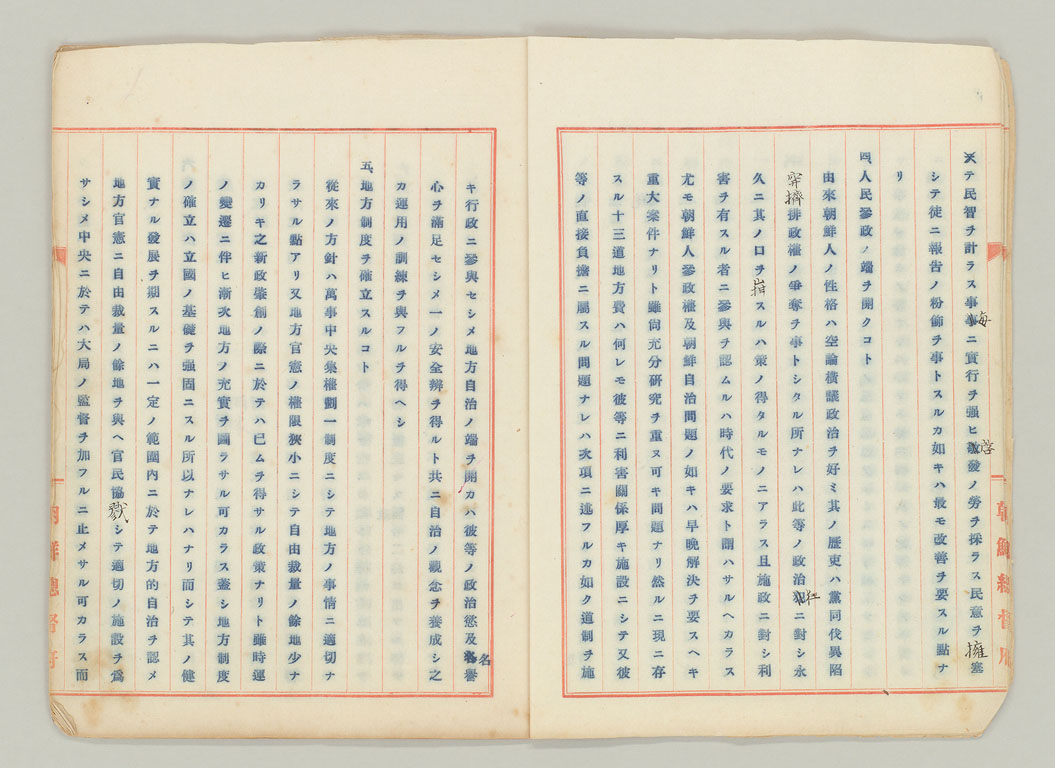 テ民智ヲ計ラス事每ニ實行ヲ强ヒ啓發ノ勞ヲ採ラス民意ヲ擁塞
シテ徒ニ報告ノ粉飾ヲ事トスルカ如キハ最モ改善ヲ要スル點ナ
リ
四、人民參政ノ端ヲ開クコト
由來朝鮮人ノ性格ハ空論橫議政治ヲ好ミ其ノ歷史ハ黨同伐異陷
擠排政權ノ爭奪ヲ事トシタル所ナレハ此等ノ政治狂ニ對シ永
久ニ其ノロヲ箝スルハ策ノ得タルモノニアラス且施政ニ對シ利
害ヲ有スル者ニ參與ヲ認ムルハ時代ノ要求ト謂ハサルヘカラス
尤モ朝鮮人參政權及朝鮮自治問題ノ如キハ早晚解決ヲ要スヘキ
重大案件ナリト雖尙充分硏究ヲ重ヌ可キ問題ナリ然ルニ現ニ存
スル十三道地方費ハ何レモ彼等ニ利害關係厚キ施設ニシテ又彼
等ノ直接負擔ニ屬スル問題ナレハ次項ニ述フルカ如ク道制ヲ施
キ行政ニ參與セシメ地方自治ノ端ヲ開カハ彼等ノ政治慾及名譽
心ヲ滿足セシメ一ノ安全辨ヲ得ルト共ニ自治ノ觀念ヲ養成シ之
カ運用ノ訓練ヲ與フルヲ得ヘシ
五、地方制度ヲ確立スルコト
從來ノ方針ハ萬事中央集權劃一制度ニシテ地方ノ事情ニ適切ナ
ラサル點アリ又地方官憲ノ權限狹小ニシテ自由裁量ノ餘地少ナ
カリキ之新政肇創ノ際ニ於テハ已ムヲ得サル政策ナリト雖時運
ノ變遷ニ伴ヒ漸次地方ノ充實ヲ圖ラサル可カラス蓋シ地方制度
ノ確立ハ立國ノ基礎ヲ强固ニスル所以ナレハナリ而シテ其ノ健
實ナル發展ヲ期スルニハ一定ノ範圍內ニ於テ地方的自治ヲ認メ
地方官憲ニ自由裁量ノ餘地ヲ與ヘ官民協戮シテ適切ノ施設ヲ爲
サシメ中央ニ於テハ大局ノ監督ヲ加フルニ止メサル可カラス而
朝鮮總督府